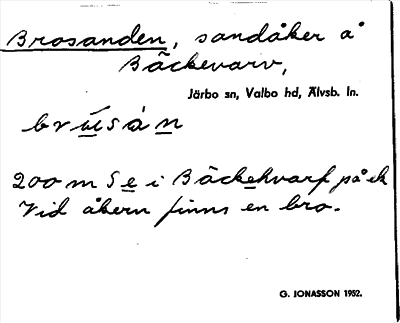 Brosanden, sandåker å
Bäckevarv,
Järbo sn, Valbo hd, Älvsb. ln.
brúsàn
200 m Se i Bäckehvarf på ek
Vid åkern finns en bro.
G. JONASSON 1952.